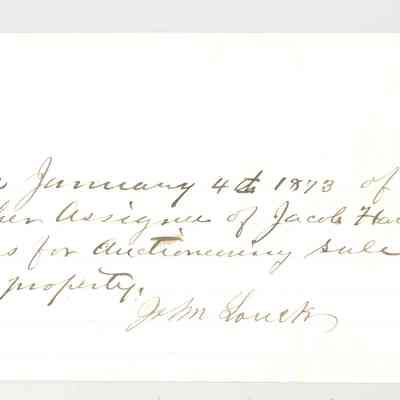 January 4th 1873 of
Assignee of Jacob Hau
s for Auctioneering sale
property.
John Louck